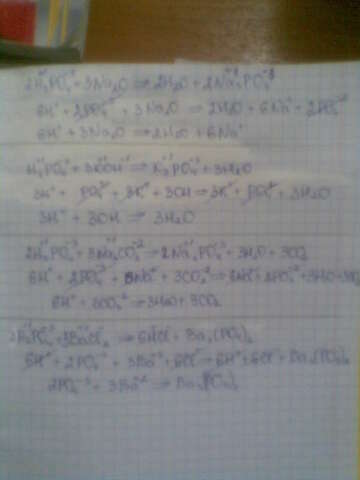 2H₃PO₄ + 3Na₂O ⇒ 2H₂O + 2Na₃PO₄
6H⁺ + 2PO₄⁻³ + 3Na₂O ⇒ 2H₂O + 6Na⁺ + 2PO₄⁻³
6H⁺ + 3Na₂O ⇒ 2H₂O + 6Na⁺
H₃PO₄ + 3KOH ⇒ K₃PO₄ + 3H₂O
3H⁺ + PO₄⁻³ + 3K⁺ + 3OH ⇒ 3K⁺ + PO₄⁻³ + 3H₂O
3H⁺ + 3OH ⇒ 3H₂O
2H₃PO₄ + 3Na₂CO₃ ⇒ 2Na₃PO₄ + 3H₂O + 3CO₂
6H⁺ + 2PO₄⁻³ + 6Na⁺ + 3CO₃⁻² ⇒ 6Na⁺ + 2PO₄⁻³ + 3H₂O +
6H⁺ + 3CO₃⁻² ⇒ 3H₂O + 3CO₂
2H₃PO₄ + 3BaCl₂ ⇒ 6HCl + Ba₃(PO₄)₂
6H⁺ + 2PO₄⁻³ + 3Ba⁺² + 6Cl⁻ ⇒ 6H⁺ + 6Cl⁻ + Ba₃(PO₄)₂
2PO₄⁻³ + 3Ba⁺² ⇒ Ba₃(PO₄)₂